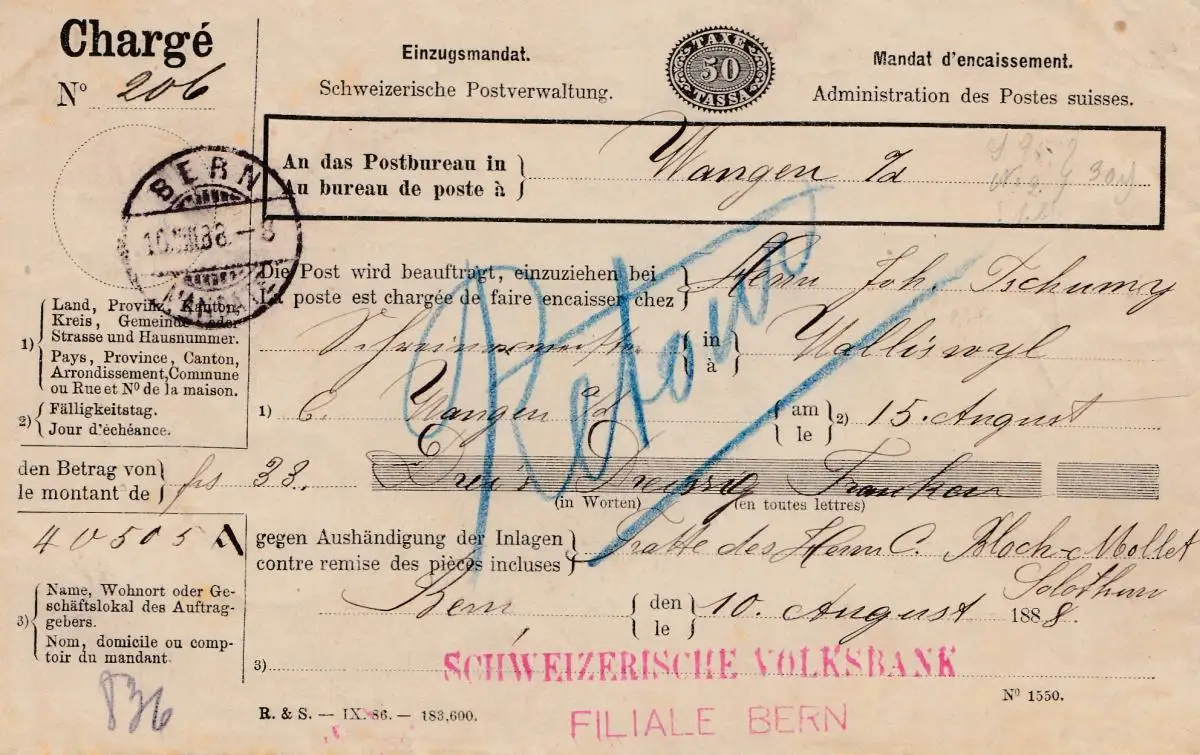 Chargé
Nº 206
Einzugsmandat.
Schweizerische Postverwaltung.
TAXE
50
TASSA
Mandat d'encaissement.
Administration des Postes suisses.
An das Postbureau in
Au bureau de poste à
Wangen a/A
BERN
10.VIII.88.-8
Die Post wird beauftragt, einzuziehen bei
La poste est chargée de faire encaisser chez
Herrn Joh. Tschumy
Schreinermeister in à Walliswyl
1) Land, Provinz, Kanton,
Kreis, Gemeinde oder
Strasse und Hausnummer.
Pays, Province, Canton,
Arrondissement, Commune
ou Rue et Nº de la maison.
2) Fälligkeitstag.
Jour d'échéance.
1) Wangen a/A am le 2) 15. August
Retour
den Betrag von
le montant de
frs 33.
Drei & Dreissig Franken
(in Worten) (en toutes lettres)
40505 A
gegen Aushändigung der Inlagen
contre remise des pièces incluses
Tratte des Herrn C. Bloch-Mollet
Solothurn
Bern den le 10. August 1888.
3) Name, Wohnort oder Ge-
schäftslokal des Auftrag-
gebers.
Nom, domicile ou comp-
toir du mandant.
3) SCHWEIZERISCHE VOLKSBANK
FILIALE BERN
Nº 1550.
836
R. & S. — IX. 86. — 183,600.